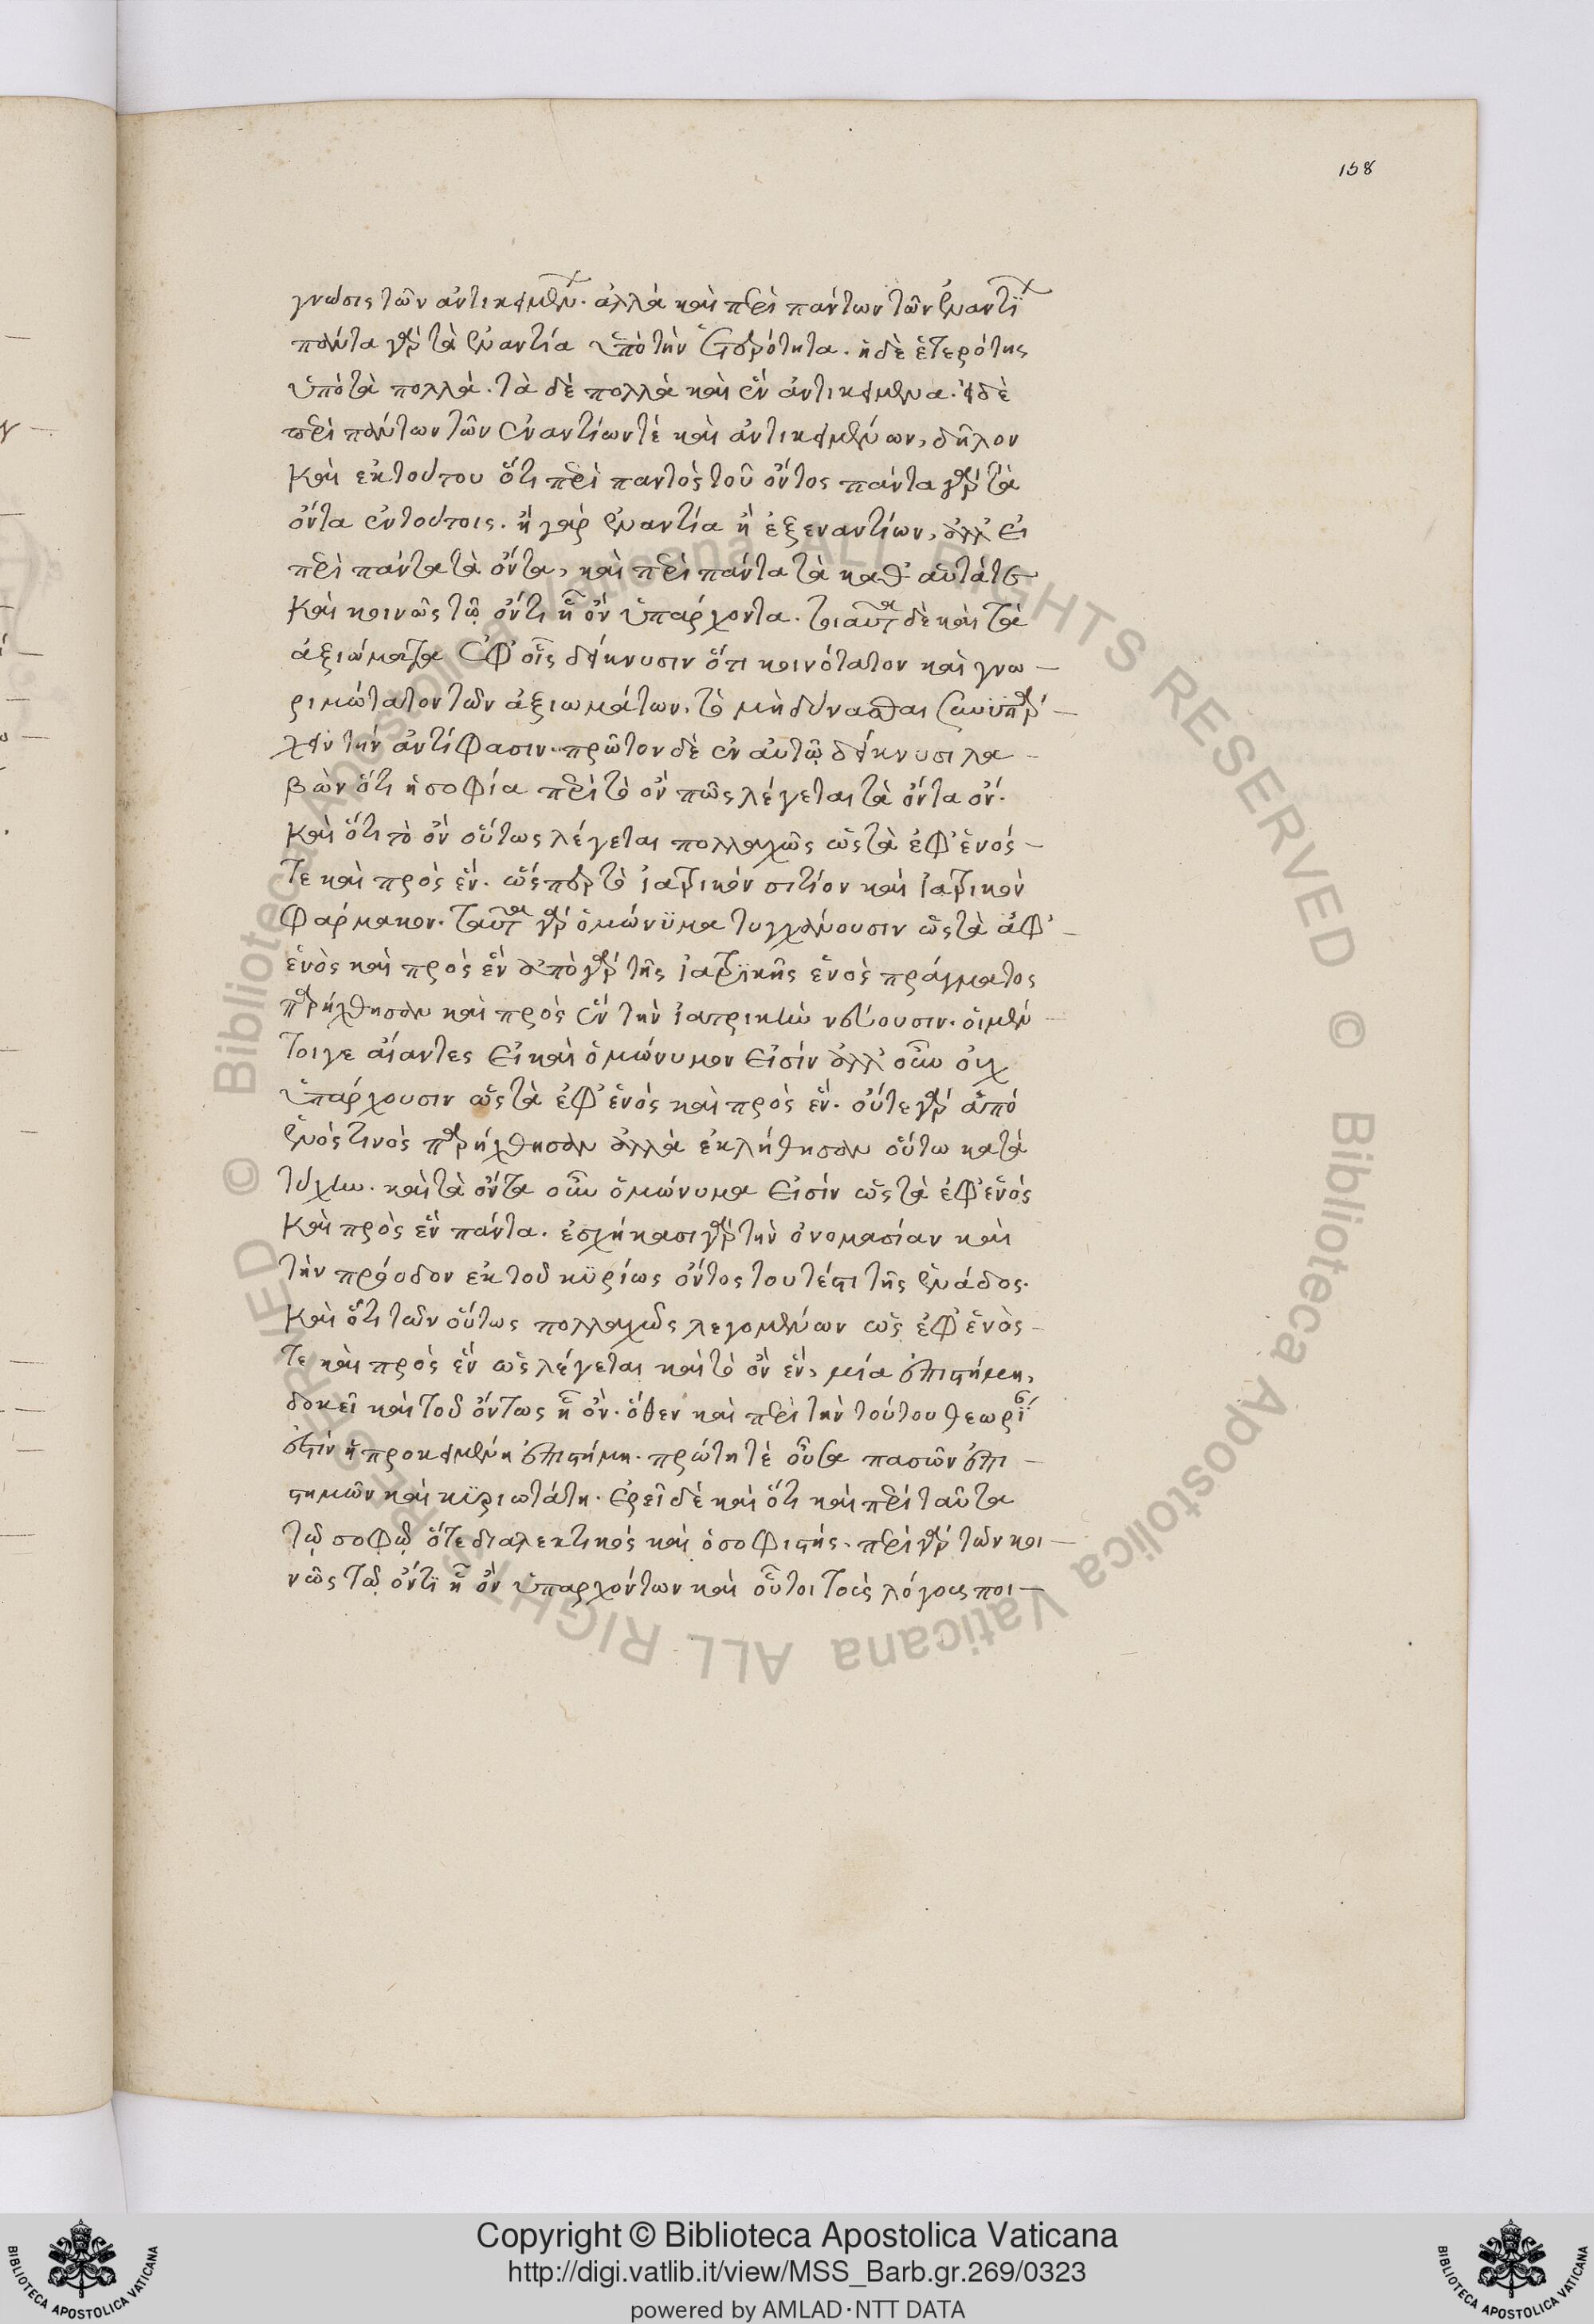 158
γνώσις τῶν ἀντικειμένων. ἀλλὰ καὶ περὶ πάντων τῶν ἐναντίων
πάντα γὰρ τὰ ἐναντία ὑπὸ τὴν ἑτερότητα. ἡ δὲ ἑτερότης
ὑπὸ τὰ πολλά. τὰ δὲ πολλὰ καὶ ἓν ἀντικείμενα. εἰ δὲ
περὶ πάντων τῶν ἐναντίων τὲ καὶ ἀντικειμένων, δῆλον
καὶ εκτούτου ὅτι περὶ παντὸς τοῦ ὄντος πάντα γὰρ τὰ
ὄντα ἐν τούτοις. ἢ γὰρ ἐναντία ἢ ἐξεναντίων, ἀλλ' εἰ
περὶ πάντα τὰ ὄντα, καὶ περὶ πάντα τὰ καθ' αὑτά τε
καὶ κοινῶς τῷ ὄντι ᾗ ὂν ὑπάρχοντα. τοιαῦτα δὲ καὶ τὰ
ἀξιώματα ἐφ' οἷς δείκνυσιν ὅτι κοινότατον καὶ γνω-
ριμώτατον τῶν ἀξιωμάτων, τὸ μὴ δύνασθαι συνϋπάρ-
χειν τὴν ἀντίφασιν. πρῶτον δὲ ἐν αὐτῷ δείκνυσι λα-
βὼν ὅτι ἡ σοφία περὶ τὸ ὂν πῶς λέγεται τὰ ὄντα ὄν.
καὶ ὅτι τὸ ὂν οὕτως λέγεται πολλαχῶς ὡς τὰ ἐφ' ἑνός-
τε καὶ πρὸς ἕν. ὥσπερ τὸ ἰατρικὸν σιτίον καὶ ἰατρικὸν
φάρμακον. ταῦτα γὰρ ὁμώνϋμα τυγχάνουσιν ὡς τὰ ἀφ'-
ἑνὸς καὶ πρὸς ἓν ἀπὸ γὰρ τῆς ἰατρϊκῆς ἑνὸς πράγματος
παρήχθησαν καὶ πρὸς ἓν τὴν ἰατρικὴν νεύουσιν. οἱ μέν
τοιγε αἴαντες εἰ καὶ ὁμώνυμον εἰσίν ἀλλ' οὖν οὐχ
ὑπάρχουσιν ὡς τὰ ἐφ' ἑνὸς καὶ πρὸς ἕν. οὔτε γὰρ ἀπό
ἑνός τινὸς παρήχθησαν ἀλλὰ ἐκλήθησαν οὕτω κατὰ
τύχην. καὶ τὰ ὄντα οὖν ὁμώνυμα εἰσίν ὡς τὰ ἐφ' ἑνός
καὶ πρὸς ἓν πάντα. ἐσχήκασι γὰρ τὴν ὀνομασίαν καὶ
τὴν πρόοδον ἐκ τοῦ κϋρίως ὄντος τουτέστι τῆς ἑνάδος.
καὶ ὅτι τῶν οὕτως πολλαχῶς λεγομένων ὡς ἐφ' ἑνὸς-
τε καὶ πρὸς ἓν ὡς λέγεται καὶ τὸ ὂν ἕν, μία ἐπιστήμη,
δοκεῖ καὶ τοῦ ὄντως ᾗ ὄν. ὅθεν καὶ περὶ τὴν τούτου θεωρΐας
ἐστὶν ἡ προκειμένη ἐπιστήμη. πρώτη τὲ οὖσα πασῶν ἐπι-
στημῶν καὶ κϋριωτάτη. ἐρεῖ δὲ καὶ ὅτι καὶ περὶ ταῦτα
τῷ σοφῷ ὅτε διαλεκτικὸς καὶ ὁ σοφιστής. περὶ γὰρ τῶν κοι-
νῶς τῷ ὄντϊ ᾗ ὂν ὑπαρχόντων καὶ οὗτοι τοὺς λόγους ποι-
Copyright © Biblioteca Apostolica Vaticana
http://digi.vatlib.it/view/MSS_Barb.gr.269/0323
powered by AMLAD·NTT DATA